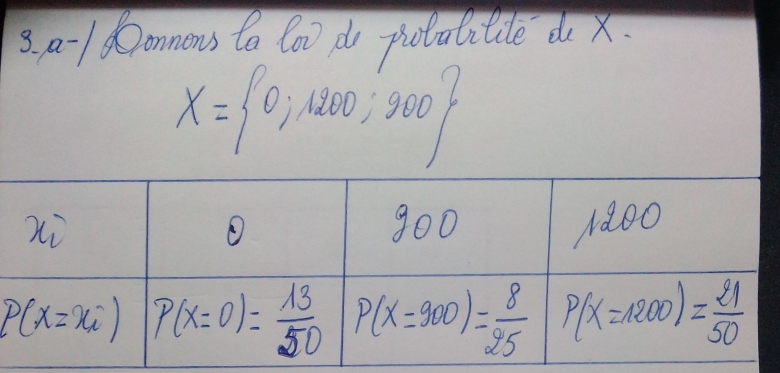 3-a-/ Donnons la loi de probabilité de X.
X = {0; 1200; 900}
xi 0 900 1200
P(X=xi) P(X=0)= 13/50 P(X=900)= 8/25 P(X=1200)= 21/50